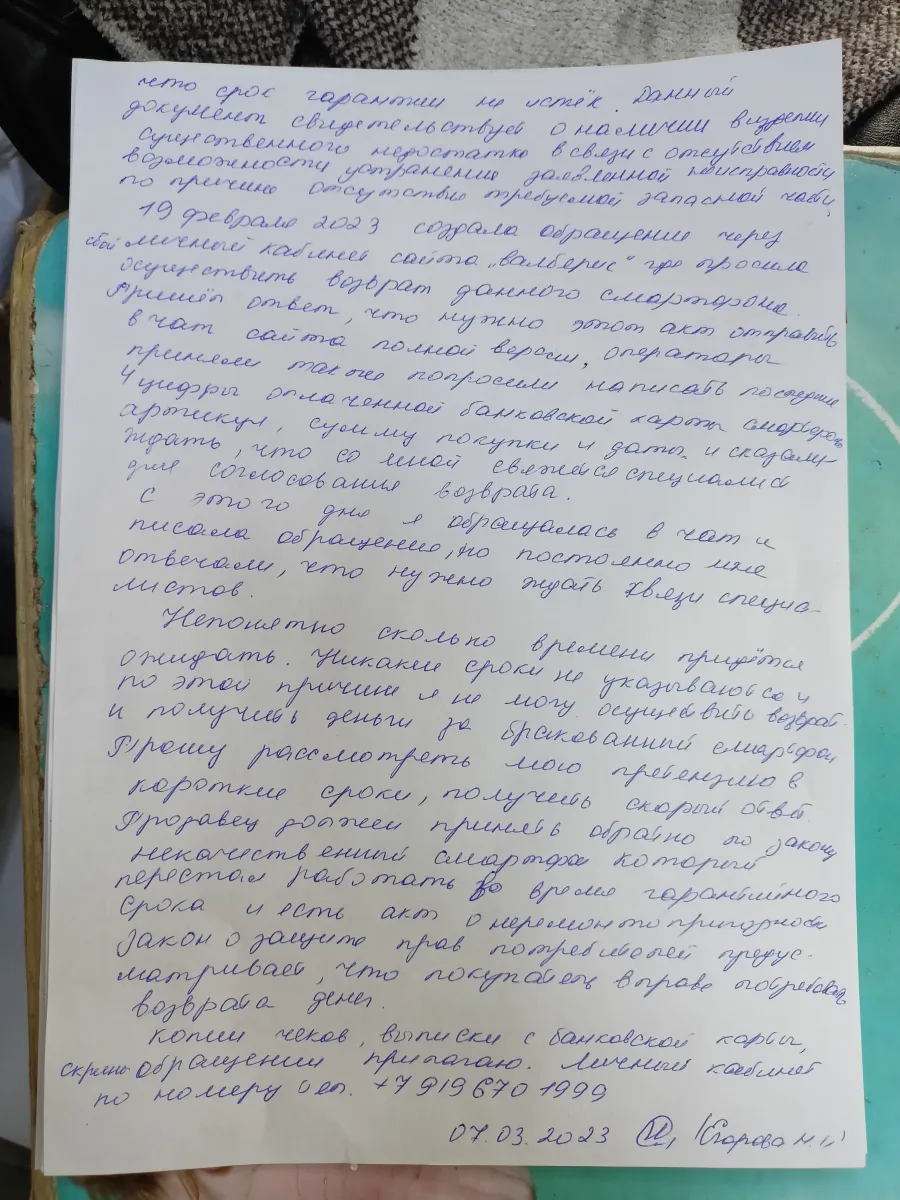 что срок гарантии не истёк. Данный
документ свидетельствует о наличии в изделии
существенного недостатка в связи с отсутствием
возможности устранения заявленной неисправности
по причине отсутствия требуемой запасной части,
19 февраля 2023 создала обращение через
свой личный кабинет сайта „валберис" где просила
осуществить возврат данного смартфона.
Пришёл ответ, что нужно этот акт отправить
в чат сайта полной версии, операторы
приняли также попросили написать последние
4 цифры оплаченной банковской карты смартфона
артикул, сумму покупки и даты и сказали
ждать, что со мной свяжется специалист
для согласования возврата.
С этого дня я обращалась в чат и
писала обращение, но постоянно мне
отвечали, что нужно ждать связи специа-
листов.
Непонятно сколько времени придётся
ожидать. Никакие сроки не указываются и
по этой причине я не могу осуществить возврат
и получить деньги за бракованный смартфон
Прошу рассмотреть мою претензию в
короткие сроки, получить скорый ответ.
Продавец должен принять обратно по закону
некачественный смартфон который
перестал работать во время гарантийного
срока и есть акт о неремонтопригодности
Закон о защите прав потребителей предус-
матривает, что покупатель вправе потребовать
возврата денег.
Копии чеков, выписки с банковской карты,
скрины обращении прилагаю. Личный кабинет
по номеру тел. +7 919 670 1999
07.03.2023 (Егорова